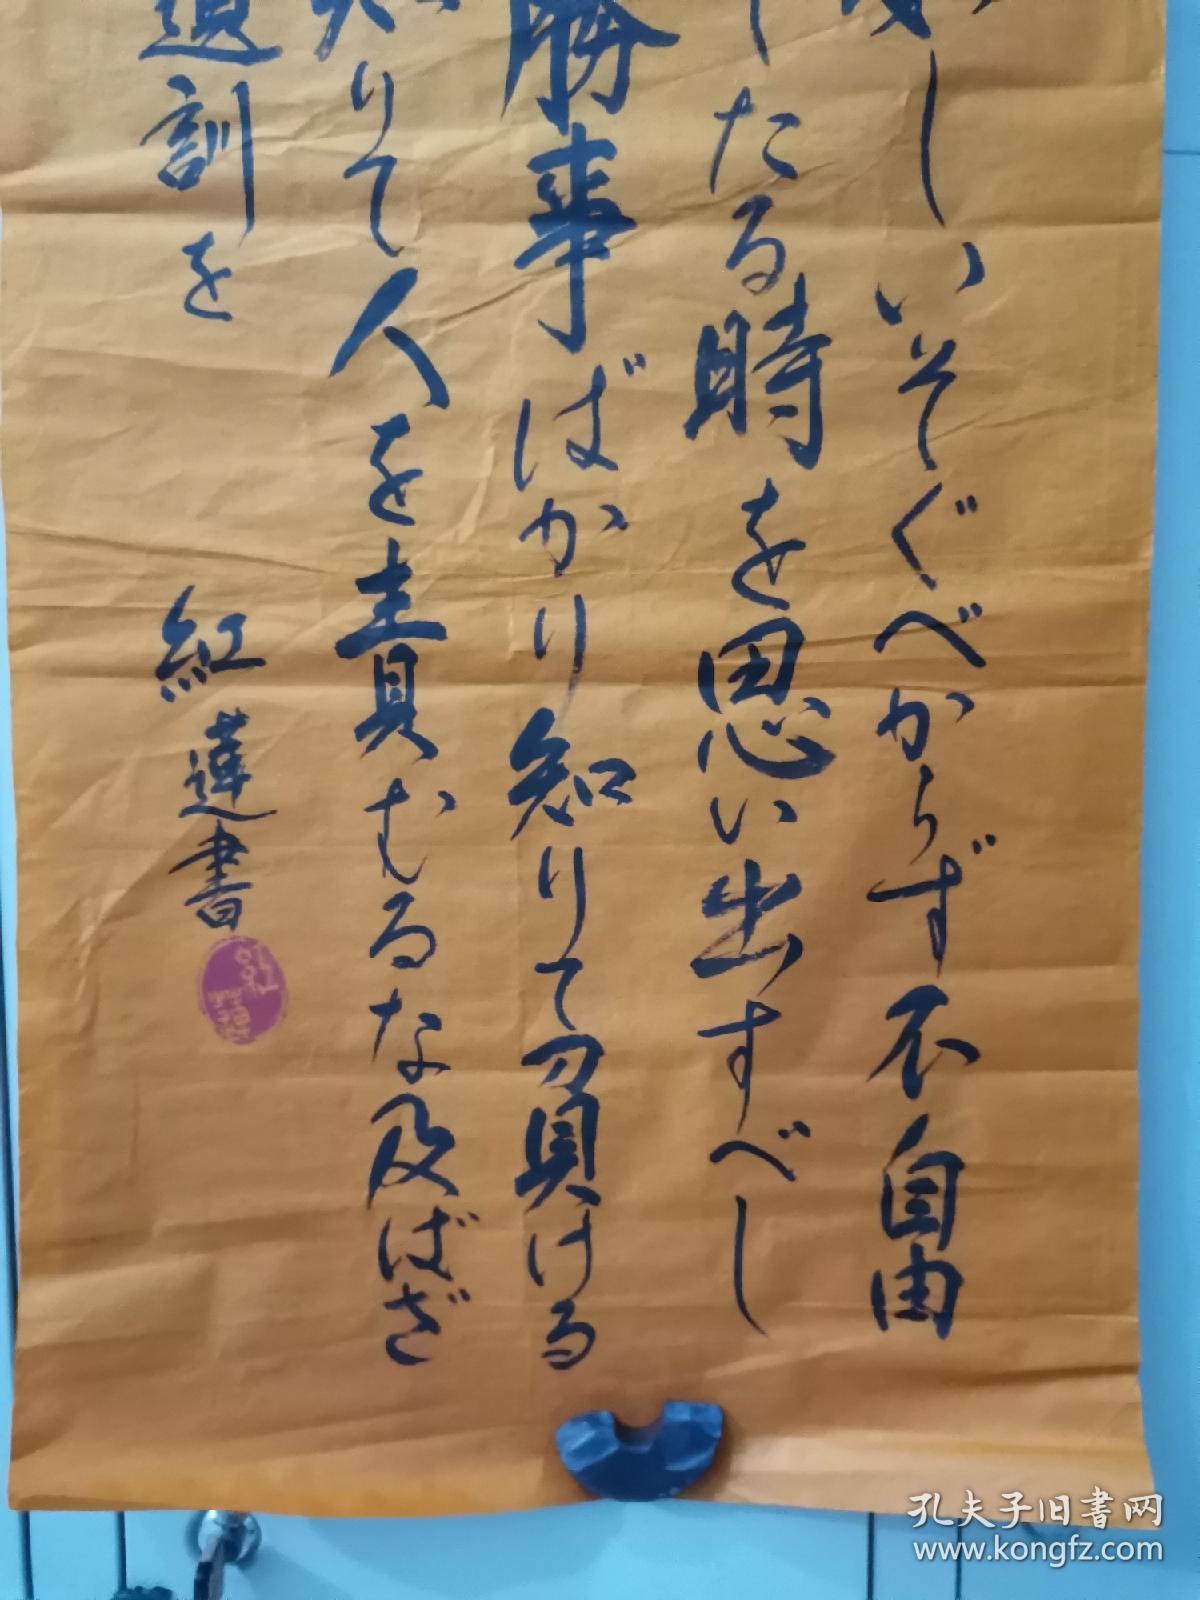 しいそぐべからず不自由
したる時を思い出すべし
勝事ばかり知りて負ける
りて人を責むるな及ばざ
遺訓を
紅蓮書
孔夫子旧书网
www.kongfz.com